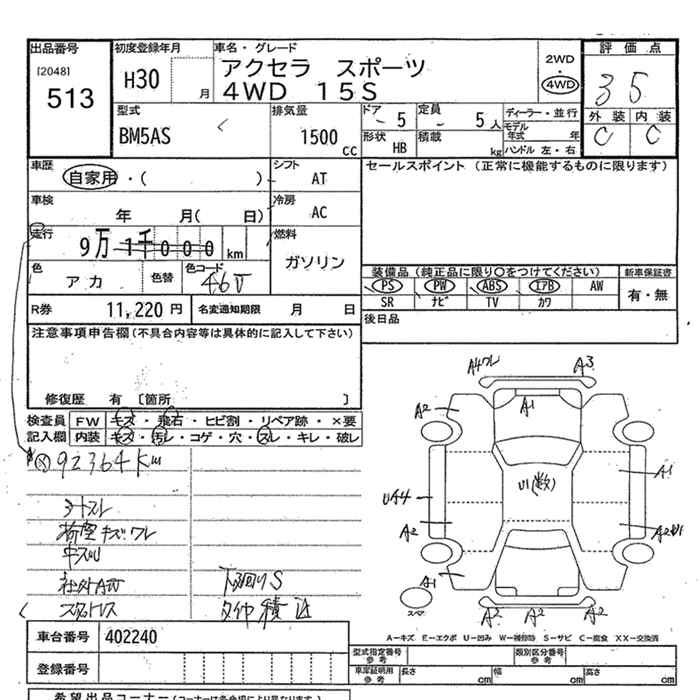 出品番号 初度登録年月 車名・グレード 2WD・4WD 評価点
[2048]
513
H30 月
アクセラ スポーツ
4WD 15S
3 5
外装 内装
C C
型式 排気量 ドア 定員 ディーラー・並行
BM5AS 1500 cc 5 5人 モデル年式 年
形状 積載 ハンドル 左・右
HB kg
車歴 シフト セールスポイント (正常に機能するものに限ります)
自家用・( ) AT
車検 冷房
年 月( 日) AC
走行 燃料
9万1千000 km ガソリン
色 色替 色コード 装備品 (純正品に限り○をつけてください) 新車保証書
アカ 46V PS PW ABS エアB AW 有・無
SR ナビ TV カワ
R券 11,220円 名変通知期限 月 日 後日品
注意事項申告欄(不具合内容等は具体的に記入して下さい)
修復歴 有 〔箇所 〕
検査員 FW キズ・飛石・ヒビ割・リペア跡・×要
記入欄 内装 キズ・汚レ・コゲ・穴・スレ・キレ・破レ
92364Km
シートスレ
キズワレ
社外AW
下回りS
スタッドレス
タイヤ積込
A4ワレ A3
A2 A1
U1(数) A1
UA4
A2
A1
A2 A2 A2
A-キズ E-エクボ U-凹み W-補修跡 S-サビ C-腐食 XX-交換済
車台番号 402240
型式指定番号 参考 類別区分番号 参考
登録番号 車庫証明用 参考 長さ cm 幅 cm 高さ cm
希望出品コーナー